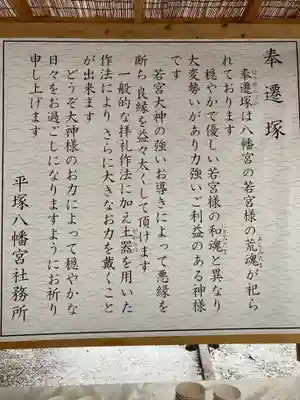 奉遷塚
奉遷塚は八幡宮の若宮様の荒魂が祀ら
れております
穏やかで優しい若宮様の和魂と異なり
大変勢いがあり力強いご利益のある神様
です
若宮大神の強いお導きによって悪縁を
断ち良縁を益々太くして頂けます
一般的な拝礼作法に加え土器を用いた
作法により さらに大きなお力を戴くこと
が出来ます
どうぞ大神様のお力によって穏やかな
日々をお過ごしになりますようにお祈り
申し上げます
平塚八幡宮社務所